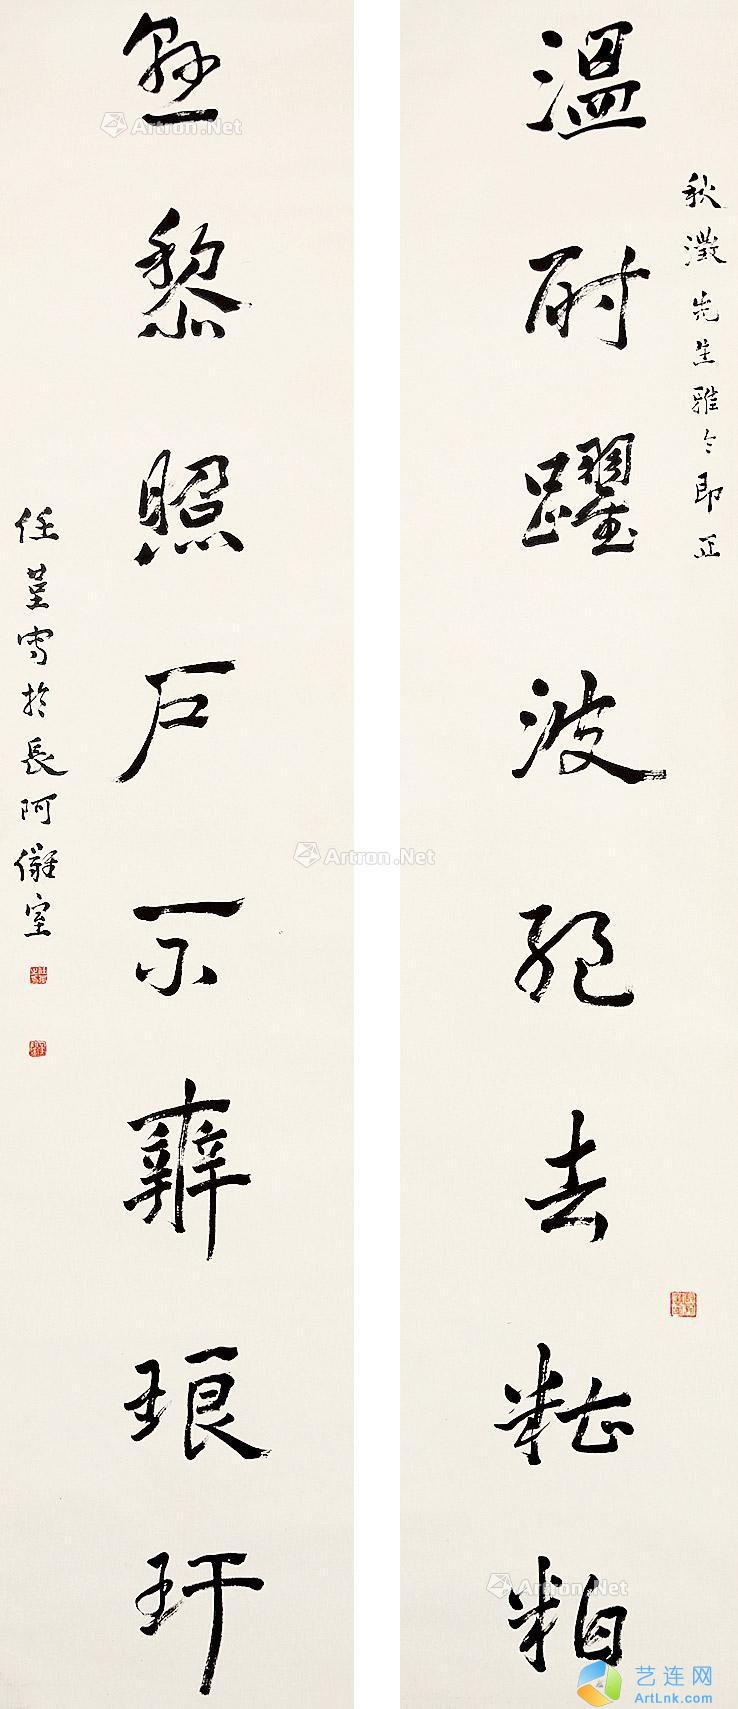 溫酎躍波絕去糟粕
秋澂先生雅令即正
懸黎照戶不辨琅玕
任堇寫於長阿儺室
Artron.Net
Artron.Net
Artron.Net
艺连网
ArtLnk.com